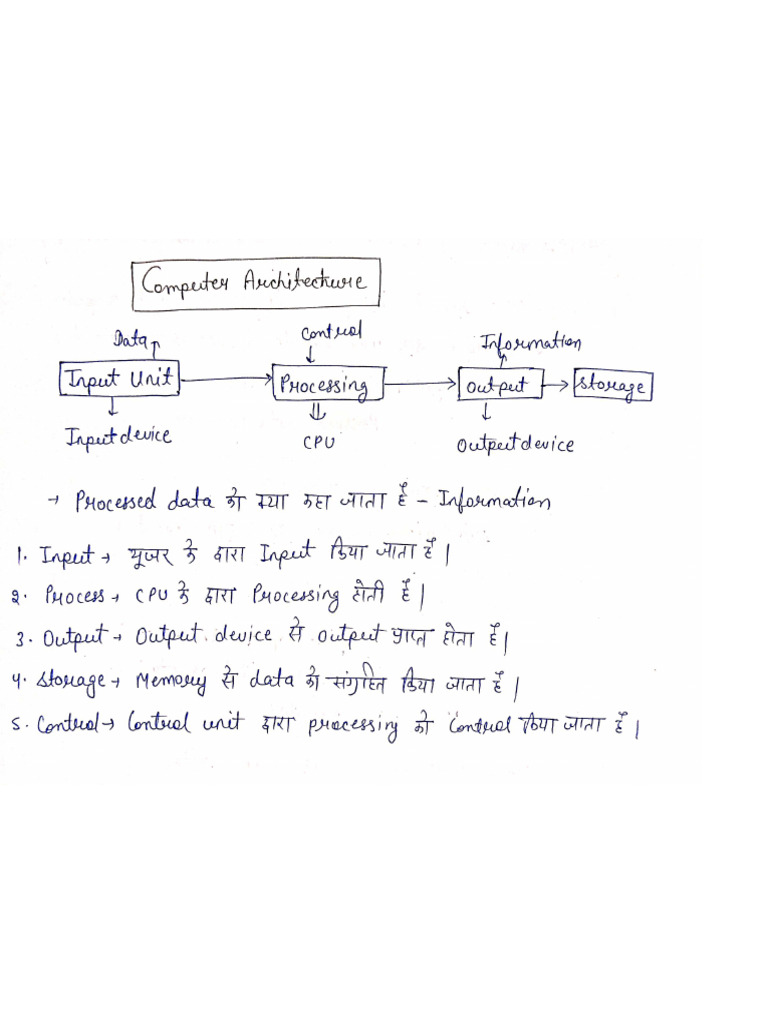 Computer Architecture
Data Control Information
Input Unit Processing Output Storage
Input device CPU Output device
→ Processed data को क्या कहा जाता हैं - Information
1. Input → यूजर के द्वारा Input किया जाता हैं।
2. Process → CPU के द्वारा Processing होती हैं।
3. Output → Output device से output प्राप्त होता हैं।
4. Storage → Memory से data को संग्रहित किया जाता हैं।
5. Control → Control unit द्वारा processing को Control किया जाता हैं।